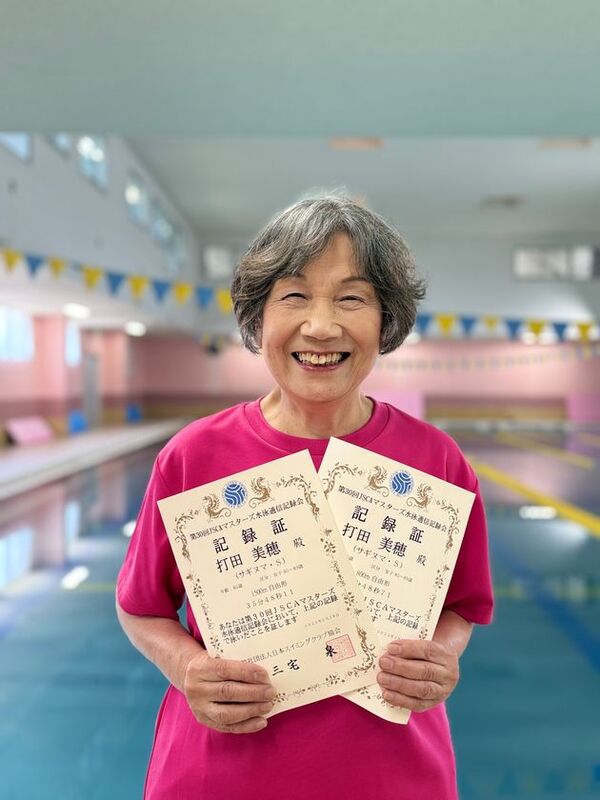 第30回JSCAマスターズ水泳通信記録会
記録証
打田 美穂 殿
(サギヌマ・S)
1500m 自由形
35分48秒71
あなたは第30回JSCAマスターズ
水泳通信記録会において、上記の記録
で泳いだことを証します
社団法人日本スイミングクラブ協会
三宅 泉
第30回JSCAマスターズ水泳通信記録会
記録証
打田 美穂 殿
(サギヌマ・S)
自由形
48秒21
JSCAマスターズ
上記の記録